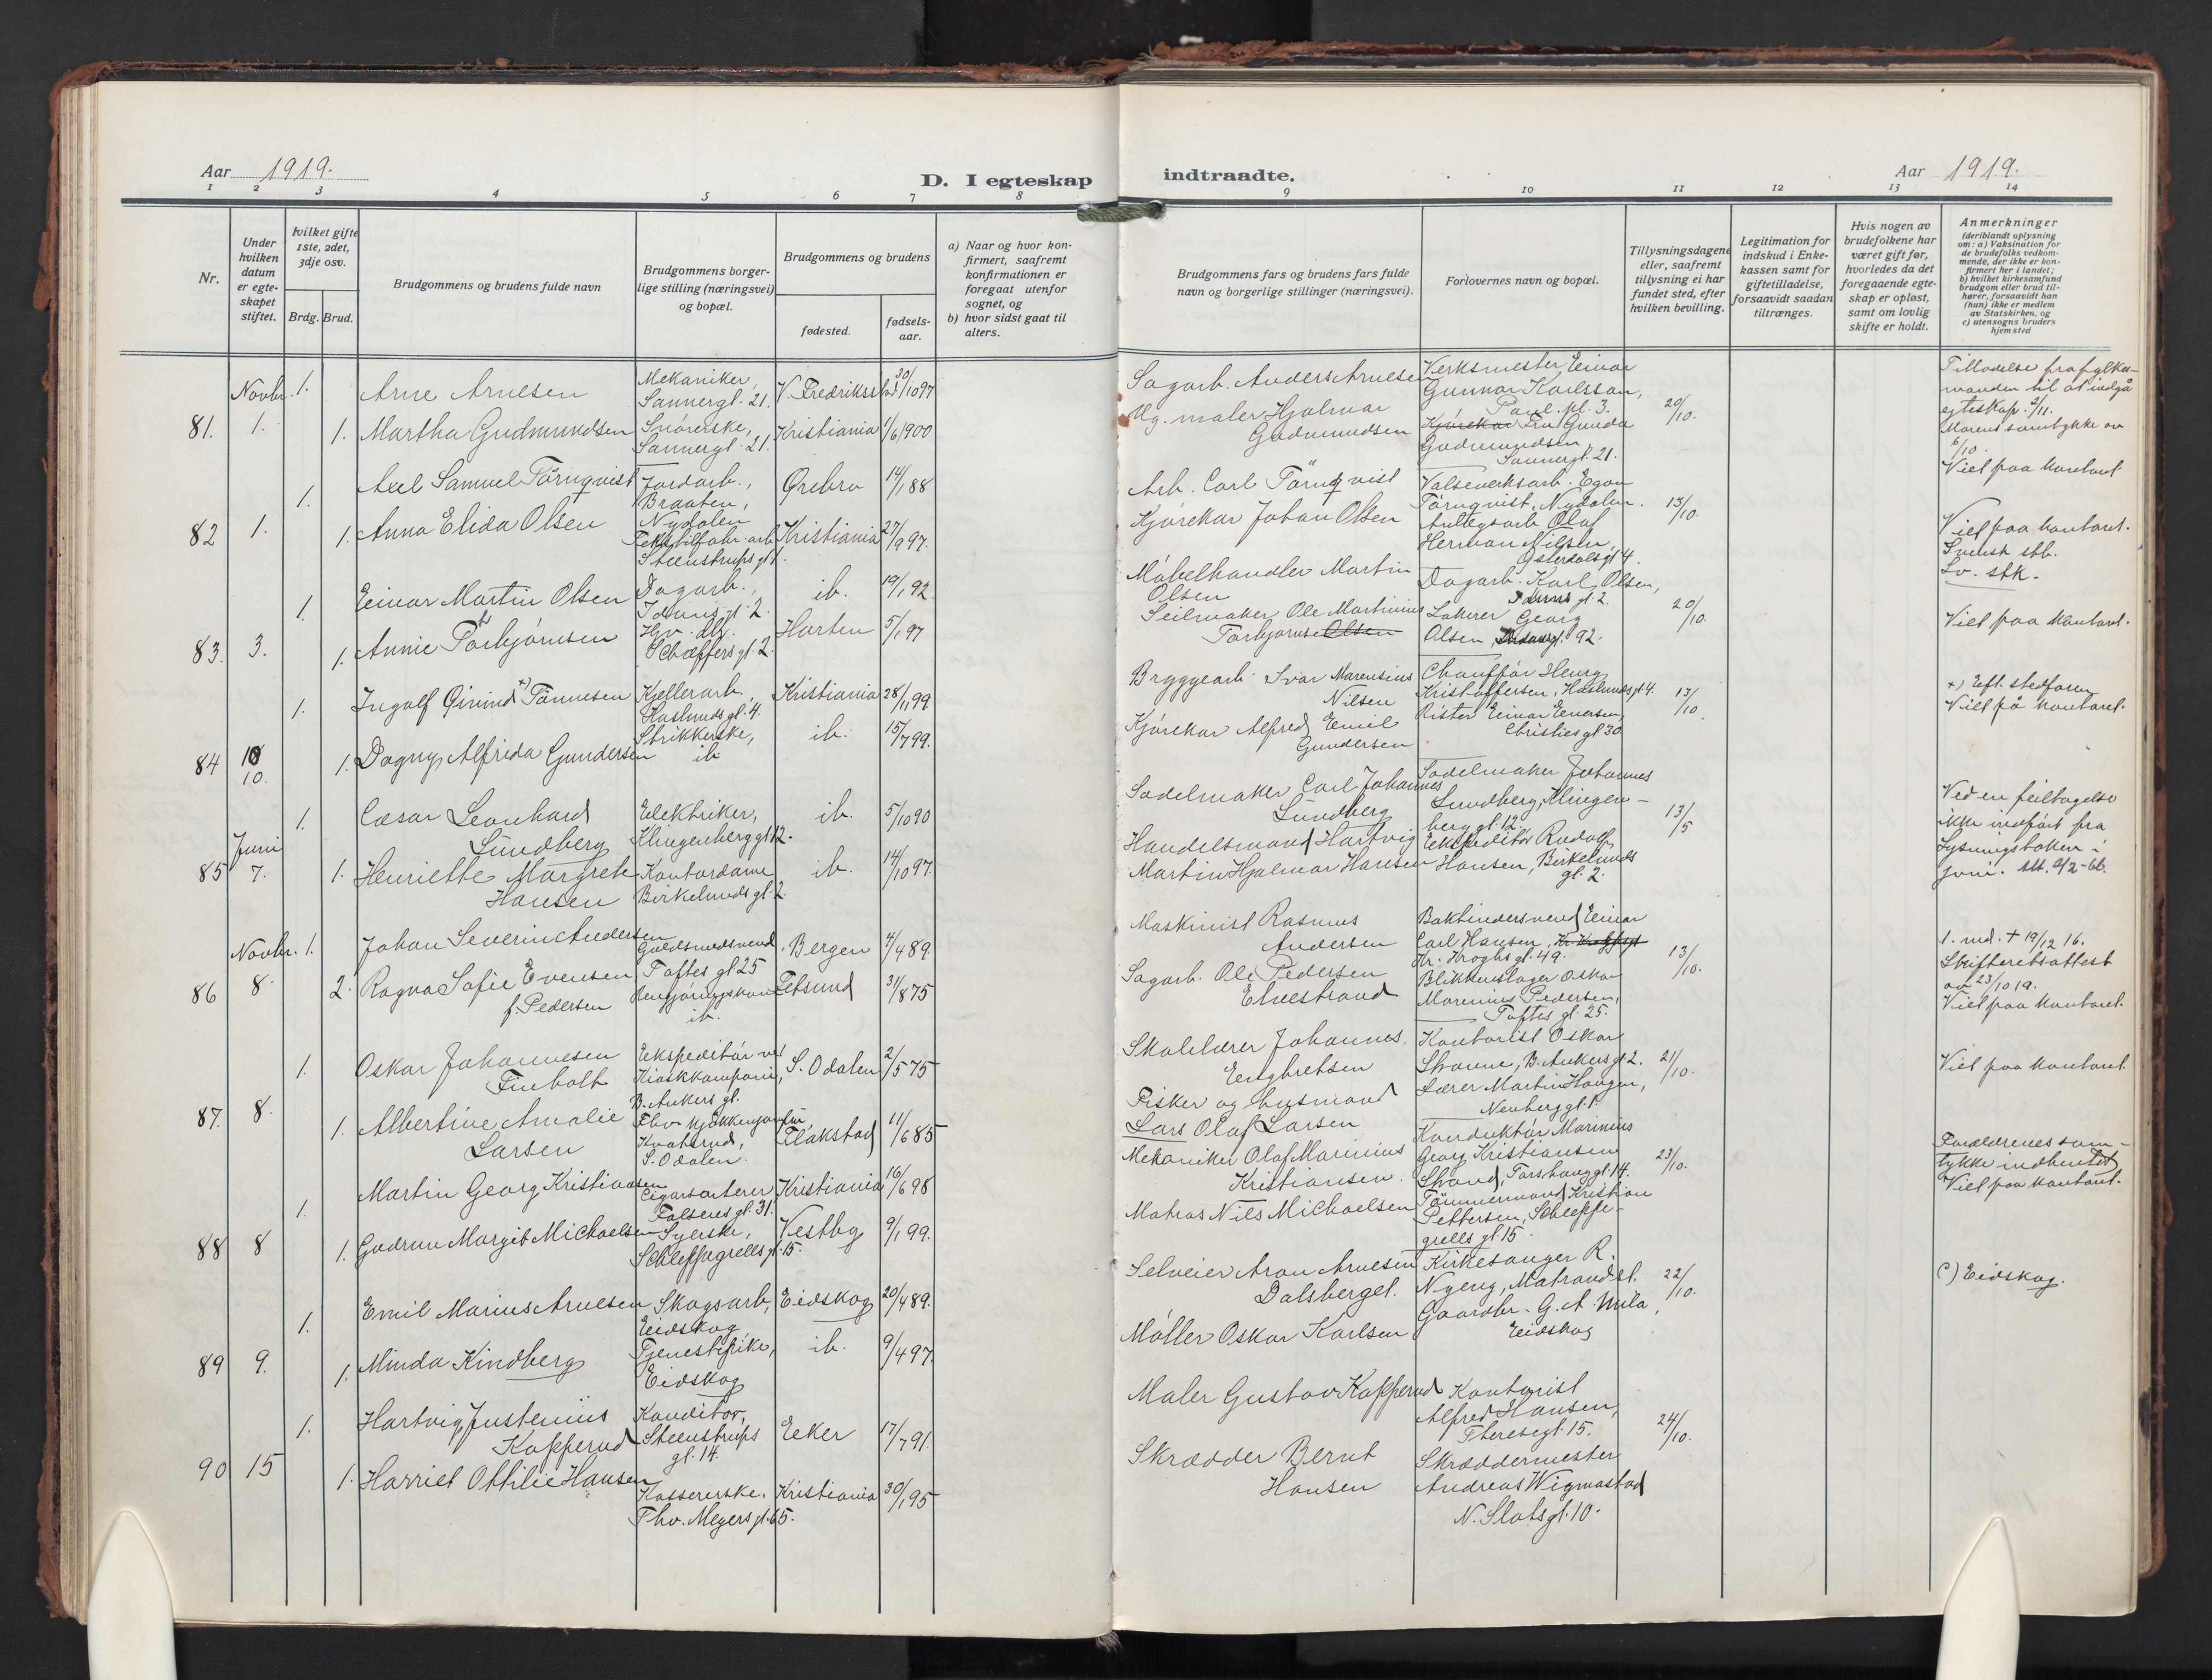 Aar 1919.
D. I egteskap
indtraadte.
Aar 1919.
1 2 3 4 5 6 7 8
9 10 11 12 13 14
Nr.
Under hvilken datum er egteskapet stiftet.
hvilket gifte 1ste, 2det, 3dje osv.
Brdg. Brud.
Brudgommens og brudens fulde navn
Brudgommens borgerlige stilling (næringsvei) og bopæl.
Brudgommens og brudens
fødested.
fødselsaar.
a) Naar og hvor konfirmert, saafremt konfirmationen er foregaat utenfor sognet, og
b) hvor sidst gaat til alters.
Brudgommens fars og brudens fars fulde navn og borgerlige stillinger (næringsvei).
Forlovernes navn og bopæl.
Tillysningsdagene eller, saafremt tillysning ei har fundet sted, efter hvilken bevilling.
Legitimation for indskud i Enkekassen samt for giftetilladelse, forsaavidt saadan tiltrænges.
Hvis nogen av brudefolkene har været gift før, hvorledes da det foregaaende egteskap er opløst, samt om lovlig skifte er holdt.
Anmerkninger
(deriblandt oplysning om: a) Vaksination for de brudefolks vedkommende, der ikke er konfirmert her i landet; b) hvilket kirkesamfund brudgom eller brud tilhører, forsaavidt han (hun) ikke er medlem av Statskirken, og c) utensogns bruders hjemsted
Novbr. 1.
81. 1. 1.
Arne Arnesen
Martha Gudmundsen
Mekaniker,
Sannergt. 21.
Snørerske,
Sannergt. 21.
V. Fredrikstad 30/10 97
Kristiania 1/6 900
Sagarb. Anders Arnesen
Ug. maler Hjalmar
Gudmundsen
Verksmester Einar
Gunnar Karlsson,
Paul. pl. 3.
Kjørekar Fru Gunda
Gudmundsen,
Sannergt. 21.
20/10.
Tilladelse fra fylkesmanden til at indgå
egteskap. 2/11.
Morens samtykke av
6/10.
Viet paa kontoret
82 1. 1. 1.
Axel Samuel Törnqvist
Anna Elida Olsen
Jordarb.,
Braaten,
Nydalen
Tekstilfabr. arb.
Steenstrupsgt 1.
Ørebro 14/1 88
Kristiania 27/9 97.
Arb. Carl Törnqvist
Kjørekar Johan Olsen
Valseverksarb. Egon
Törnqvist, Nydalen.
Anlegsarb. Olaf
Herman Nilsen,
Østerdalsgt 4.
13/10.
Viet paa kontoret.
Svensk stb.
Lv. stk.
83. 3. 1. 1.
Einar Martin Olsen
Annie Torbjørnsen
Dagarb.,
Idunsgt. 2
Hv. dtr.
Schæffersgt. 2.
ib. 19/1 92
Horten 5/1 97
Møbelhandler Martin
Olsen
Seilmaker Ole Martinius
Torbjørnsen Olsen
Dagarb. Karl Olsen,
Idunsgt. 2.
Lakerer Georg
Olsen, 92.
20/10.
Viet paa kontoret.
84 10 10. 1. 1.
Ingolf Øivind x) Tønnesen
Dagny Alfrida Gundersen
Kjellerarb.,
Haslundsgt. 4.
Strikkerske,
ib
Kristiania 28/1 99
ib. 15/7 99.
Bryggearb. Ivar Marensius
Nilsen
Kjørekar Alfred Emil
Gundersen
Chauffør Henry
Kristoffersen, Haslundsgt 4.
Rister Einar Evensen,
Christiesgt 30
13/10.
x) Eft. stedfaren
Viet på kontoret.
Juni
85 7. 1. 1.
Cæsar Leonhard
Lundberg
Henriette Margrete
Hansen
Elektriker,
Klingenberggt. 12.
Kontordame
Birkelundsgt. 2.
ib. 5/10 90
ib. 14/10 97.
Sadelmaker Carl Johannes
Lundberg
Handelsmand Hartvig
Martin Hjalmar Hansen
Sadelmaker Johannes
Lundberg, Klingenberggt. 12.
Ekspeditør Rudolf
Hansen, Birkelunds
gt. 2.
13/5
Ved en feiltagelse
ikke indført fra
lysningsboken i
juni. Att. 2/2-66.
Novbr.
86 8. 1. 2.
Johan Severin Andersen
Ragna Sofie Evensen
f. Pedersen
Guldsmedsvend,
Toftes gt 25
Rengjøringskone
ib.
Bergen 4/4 89
Fetsund 31/8 75
Maskinist Rasmus
Andersen
Sagarb. Ole Pedersen
Elvestrand
Boktindersvend Einar
Carl Hansen, Kr. Kroghsgt
Kr. Kroghs gt. 49.
Blikkenslager Oskar
Marenius Pedersen,
Toftes gt. 25.
13/10.
1. md. + 19/12 16.
Skifteretsattest
av 23/10 19.
Viet paa kontoret.
87. 8. 1. 1.
Oskar Johannesen
Finholt
Albertine Amalie
Larsen
Ekspeditør ved
Kioskkompani,
B. Ankers gt.
Fhv. kjøkkenjomfru,
Kvatsrud,
S. Odalen.
S. Odalen 2/5 75
Flakstad 11/6 85
Skolelærer Johannes
Engbretsen
Fisker og husmand
Lars Olaf Larsen
Kontorist Oskar
Strønne, B. Ankersgt 2.
Lærer Martin Haugen,
Neuberggt. 1.
21/10.
Viet paa kontoret
88 8 1. 1.
Martin Georg Kristiansen
Gudrun Margit Michaelsen
Cigarsorterer
Falsensgt. 31.
Syerske,
Schleppegrellsgt. 15.
Kristiania 16/6 98
Vestby 9/1 99.
Mekaniker Olaf Marinius
Kristiansen.
Matros Nils Michaelsen
Konduktør Marinius
Georg Kristiansen
Strand, Torshauggt. 14.
Tømmermand Kristian
Pettersen, Schleppegrells gt. 15.
23/10.
Forældrenes samtykke indhentet
Viet paa kontoret.
89 9. 1. 1.
Emil Marius Arnesen
Minda Kindberg
Skogsarb,
Eidskog
Tjenestepike,
Eidskog
Eidskog 20/4 89.
ib. 9/4 97.
Selveier Aron Arnesen
Dalsberget.
Møller Oskar Karlsen
Kirkesanger R.
Nyeng, Matrandst.
Gaardbr. G. A. Mila,
Eidskog
22/10.
c) Eidskog.
90 15 1. 1.
Hartvig Justenius
Kopperud
Harriet Ottilie Hansen
Konditor,
Steenstrups
gt. 14.
Kassererske,
Thv. Meyersgt. 65.
Eeker 17/7 91.
Kristiania 30/1 95
Maler Gustav Kopperud
Skrædder Bernt
Hansen
Kontorist
Alfred Hansen,
Theresegt. 15.
Skræddermester
Andreas Wigmostad
N. Slotsgt. 10.
24/10.